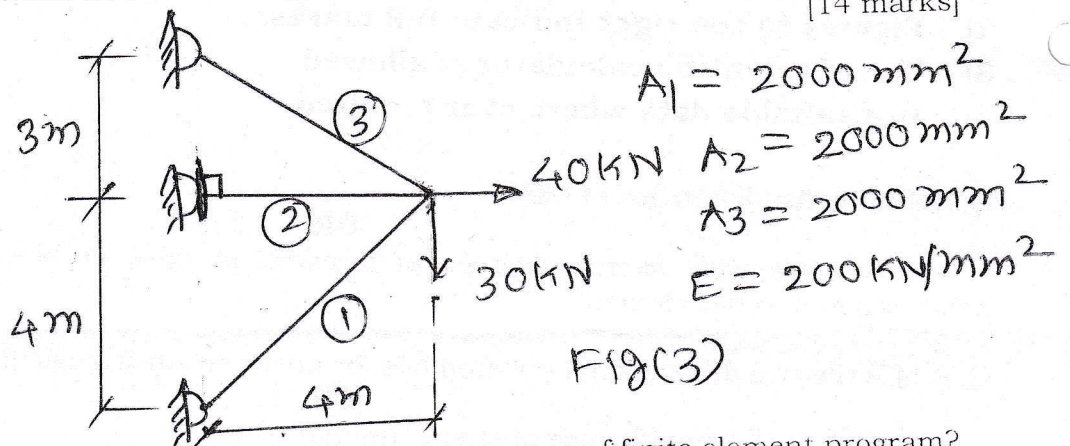 [14 marks]
3m
4m
③
②
①
4m
40KN
30KN
A1 = 2000 mm²
A2 = 2000 mm²
A3 = 2000 mm²
E = 200 KN/mm²
Fig(3)
finite element program?